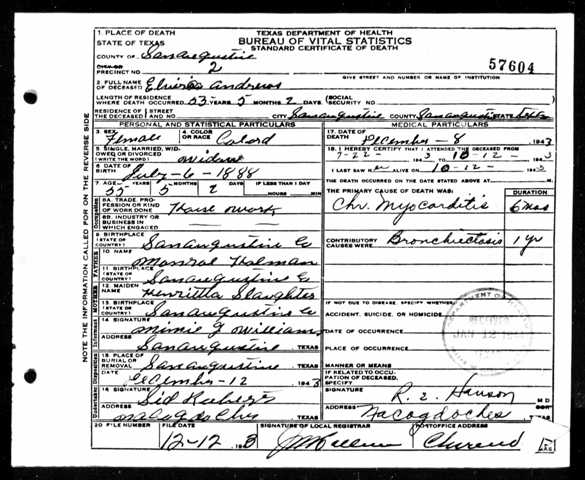 TEXAS DEPARTMENT OF HEALTH
BUREAU OF VITAL STATISTICS
STANDARD CERTIFICATE OF DEATH
57604
1. PLACE OF DEATH
STATE OF TEXAS
COUNTY OF San Augustine
CITY OR
PRECINCT NO. 2
GIVE STREET AND NUMBER OR NAME OF INSTITUTION
2. FULL NAME
OF DECEASED Andrews
LENGTH OF RESIDENCE
WHERE DEATH OCCURRED 53 YEARS 5 MONTHS 2 DAYS
(SOCIAL
SECURITY NO.
RESIDENCE OF
THE DECEASED
STREET
AND NO.
CITY San Augustine COUNTY San Augustine STATE Texas
PERSONAL AND STATISTICAL PARTICULARS
3. SEX
Female
4. COLOR
OR RACE Colord
5. SINGLE, MARRIED, WID-
OWED OR DIVORCED
(WRITE THE WORD) widow
6. DATE OF
BIRTH July-6-1888
7. AGE
YEARS MONTHS DAYS
55 5 2
IF LESS THAN 1 DAY
HOURS MIN
8A. TRADE, PROFES-
SION OR KIND
OF WORK DONE House work
8B. INDUSTRY OR
BUSINESS IN
WHICH ENGAGED
9. BIRTHPLACE
(STATE OR
COUNTRY) San Augustine Co
10. NAME
Holman
11. BIRTHPLACE
(STATE OR
COUNTRY) San Augustine Co
12. MAIDEN
NAME Henrittia Slaughter
13. BIRTHPLACE
(STATE OR
COUNTRY) San Augustine Co
14. SIGNATURE
Minie J Williams
ADDRESS
San Augustine TEXAS
15. PLACE OF
BURIAL OR
REMOVAL San Augustine TEXAS
DATE
December-12 1943
16. SIGNATURE
Sid
ADDRESS
Nacogdoches TEXAS
MEDICAL PARTICULARS
17. DATE OF
DEATH December-8 1943
18. I HEREBY CERTIFY THAT I ATTENDED THE DECEASED FROM
7-22- 1943 10-12- 1943
I LAST SAW ALIVE ON 10-12- 1943
THE DEATH OCCURRED ON THE DATE STATED ABOVE AT M.
THE PRIMARY CAUSE OF DEATH WAS: DURATION
Chr. Myocarditis 6 mos
CONTRIBUTORY
CAUSES WERE: Bronchiectasis 1 yr
IF NOT DUE TO DISEASE, SPECIFY:
ACCIDENT, SUICIDE, OR HOMICIDE.
DATE OF OCCURRENCE
PLACE OF OCCURRENCE
MANNER OR MEANS
IF RELATED TO OCCU-
PATION OF DECEASED,
SPECIFY
SIGNATURE M D
ADDRESS Nacogdoches TEXAS
20 FILE NUMBER
FILE DATE
12-12 1943
SIGNATURE OF LOCAL REGISTRAR
POSTOFFICE ADDRESS
NOTE THE INFORMATION CALLED FOR ON THE REVERSE SIDE